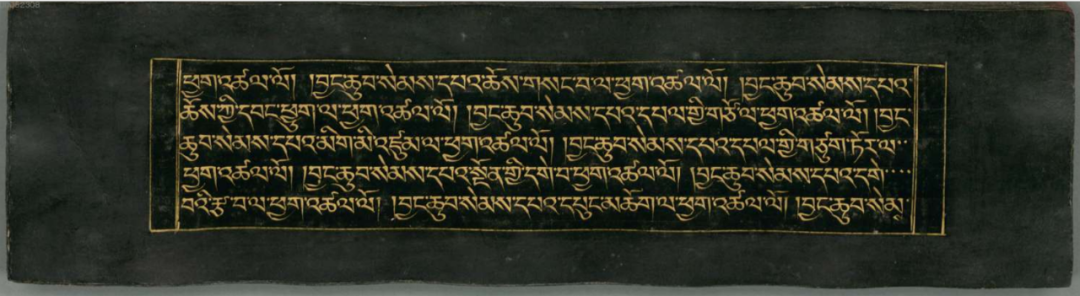 ཕྱག་འཚལ་ལོ། །བྱང་ཆུབ་སེམས་དཔའ་ཆོས་གསང་བ་ལ་ཕྱག་འཚལ་ལོ། །བྱང་ཆུབ་སེམས་དཔའ་
ཆོས་ཀྱི་དབང་ཕྱུག་ལ་ཕྱག་འཚལ་ལོ། །བྱང་ཆུབ་སེམས་དཔའ་དཔལ་གྱི་གཙོ་ལ་ཕྱག་འཚལ་ལོ། །བྱང་
ཆུབ་སེམས་དཔའ་མིག་མི་འཛུམ་ལ་ཕྱག་འཚལ་ལོ། །བྱང་ཆུབ་སེམས་དཔའ་དཔལ་གྱི་གཙུག་ཏོར་ལ་
ཕྱག་འཚལ་ལོ། །བྱང་ཆུབ་སེམས་དཔའ་སྔོན་གྱི་དགེ་བ་ཕྱག་འཚལ་ལོ། །བྱང་ཆུབ་སེམས་དཔའ་དགེ་
བའི་རྩ་བ་ལ་ཕྱག་འཚལ་ལོ། །བྱང་ཆུབ་སེམས་དཔའ་དཔུང་མཆོག་ལ་ཕྱག་འཚལ་ལོ། །བྱང་ཆུབ་སེམ